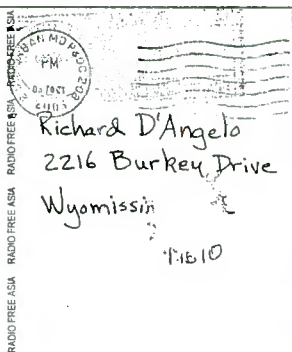 RADIO FREE ASIA RADIO FREE ASIA RADIO FREE ASIA RADIO FREE ASIA
PM
Richard D'Angelo
2216 Burkey Drive
Wyomissin